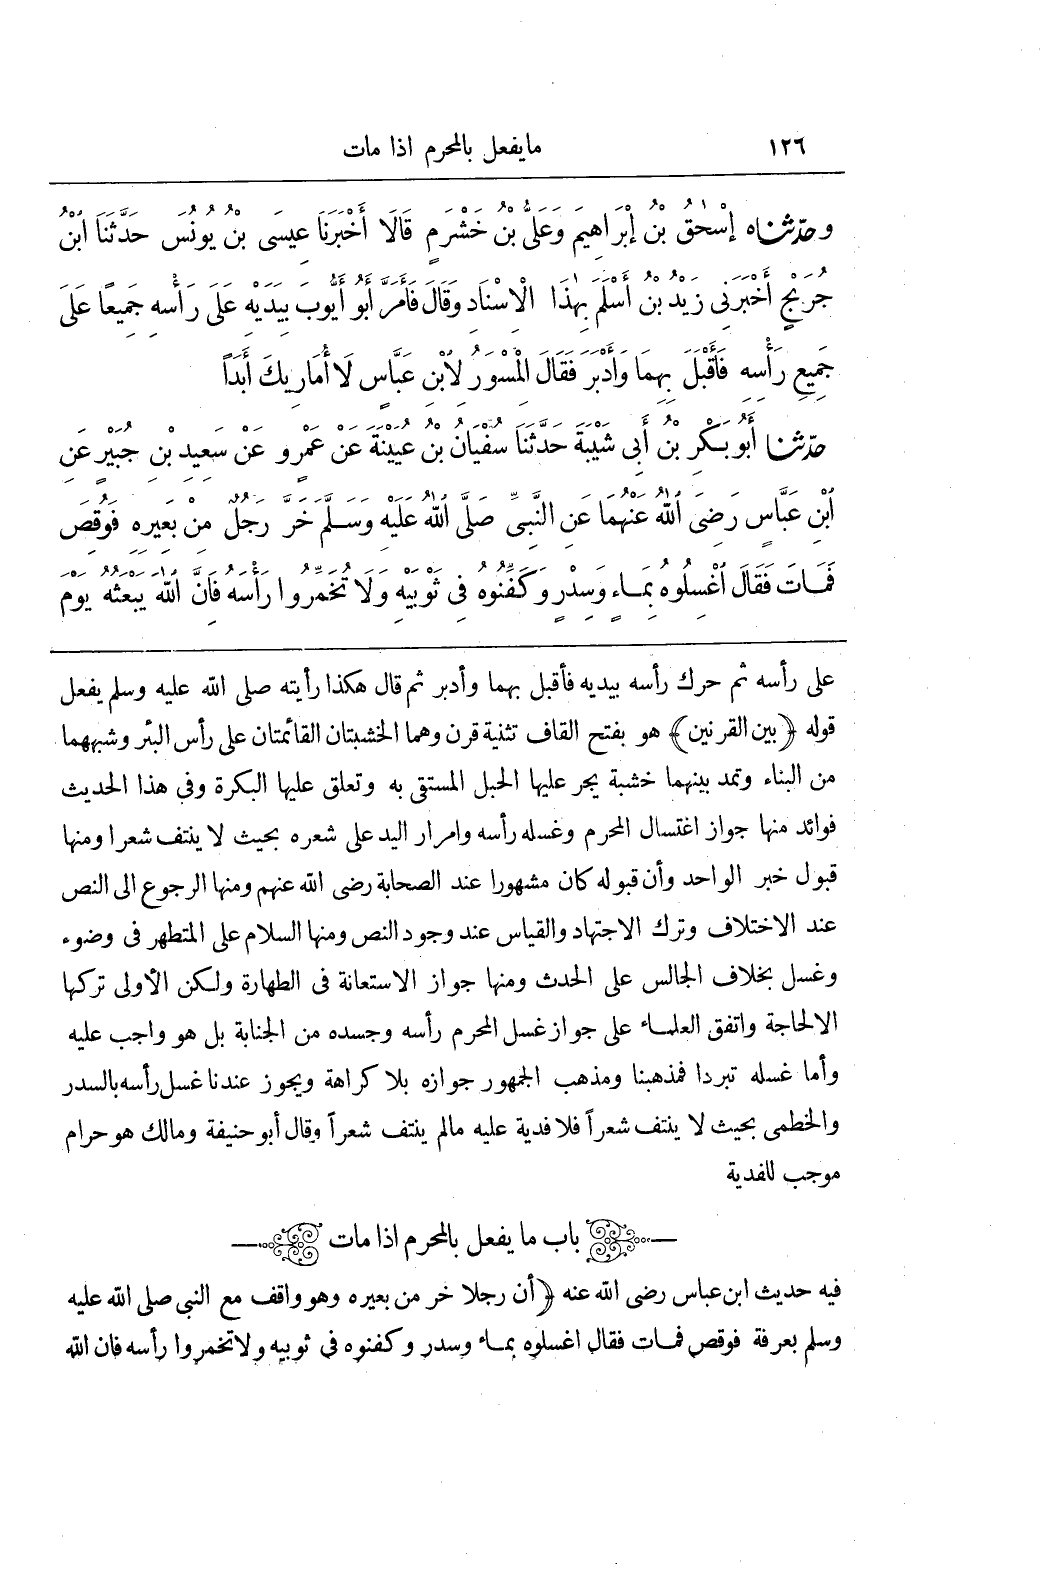 ١٢٦ مايفعل بالمحرم اذا مات
وحدّثناه إِسْحٰقُ بْنُ إِبْرَاهِيمَ وَعَلِيُّ بْنُ خَشْرَمٍ قَالَا أَخْبَرَنَا عِيسَى بْنُ يُونُسَ حَدَّثَنَا ابْنُ
جُرَيْجٍ أَخْبَرَنِى زَيْدُ بْنُ أَسْلَمَ بِهٰذَا الْإِسْنَادِ وَقَالَ فَأَمَرَّ أَبُو أَيُّوبَ بِيَدَيْهِ عَلَى رَأْسِهِ جَمِيعًا عَلَى
جَمِيعِ رَأْسِهِ فَأَقْبَلَ بِهِمَا وَأَدْبَرَ فَقَالَ الْمِسْوَرُ لِابْنِ عَبَّاسٍ لَا أُمَارِيكَ أَبَدًا
حدّثنا أَبُو بَكْرِ بْنُ أَبِى شَيْبَةَ حَدَّثَنَا سُفْيَانُ بْنُ عُيَيْنَةَ عَنْ عَمْرٍو عَنْ سَعِيدِ بْنِ جُبَيْرٍ عَنِ
ابْنِ عَبَّاسٍ رَضِىَ اللّٰهُ عَنْهُمَا عَنِ النَّبِىِّ صَلَّى اللّٰهُ عَلَيْهِ وَسَلَّمَ خَرَّ رَجُلٌ مِنْ بَعِيرِهِ فَوُقِصَ
فَمَاتَ فَقَالَ اغْسِلُوهُ بِمَاءٍ وَسِدْرٍ وَكَفِّنُوهُ فِى ثَوْبَيْهِ وَلَا تُخَمِّرُوا رَأْسَهُ فَإِنَّ اللّٰهَ يَبْعَثُهُ يَوْمَ
على رأسه ثم حرك رأسه بيديه فأقبل بهما وأدبر ثم قال هكذا رأيته صلى الله عليه وسلم يفعل
قوله ﴿بين القرنين﴾ هو بفتح القاف تثنية قرن وهما الخشبتان القائمتان على رأس البئر وشبههما
من البناء وتمد بينهما خشبة يجر عليها الحبل المستقى به وتعلق عليها البكرة وفى هذا الحديث
فوائد منها جواز اغتسال المحرم وغسله رأسه وامرار اليد على شعره بحيث لا ينتف شعرا ومنها
قبول خبر الواحد وأن قبوله كان مشهورا عند الصحابة رضى الله عنهم ومنها الرجوع الى النص
عند الاختلاف وترك الاجتهاد والقياس عند وجود النص ومنها السلام على المتطهر فى وضوء
وغسل بخلاف الجالس على الحدث ومنها جواز الاستعانة فى الطهارة ولكن الأولى تركها
الالحاجة واتفق العلماء على جواز غسل المحرم رأسه وجسده من الجنابة بل هو واجب عليه
وأما غسله تبردا فمذهبنا ومذهب الجمهور جوازه بلا كراهة ويجوز عندنا غسل رأسه بالسدر
والخطمى بحيث لا ينتف شعراً فلا فدية عليه مالم ينتف شعراً وقال أبو حنيفة ومالك هو حرام
موجب للفدية
باب ما يفعل بالمحرم اذا مات
فيه حديث ابن عباس رضى الله عنه ﴿أن رجلا خر من بعيره وهو واقف مع النبى صلى الله عليه
وسلم بعرفة فوقص فمات فقال اغسلوه بماء وسدر وكفنوه فى ثوبيه ولا تخمروا رأسه فان الله